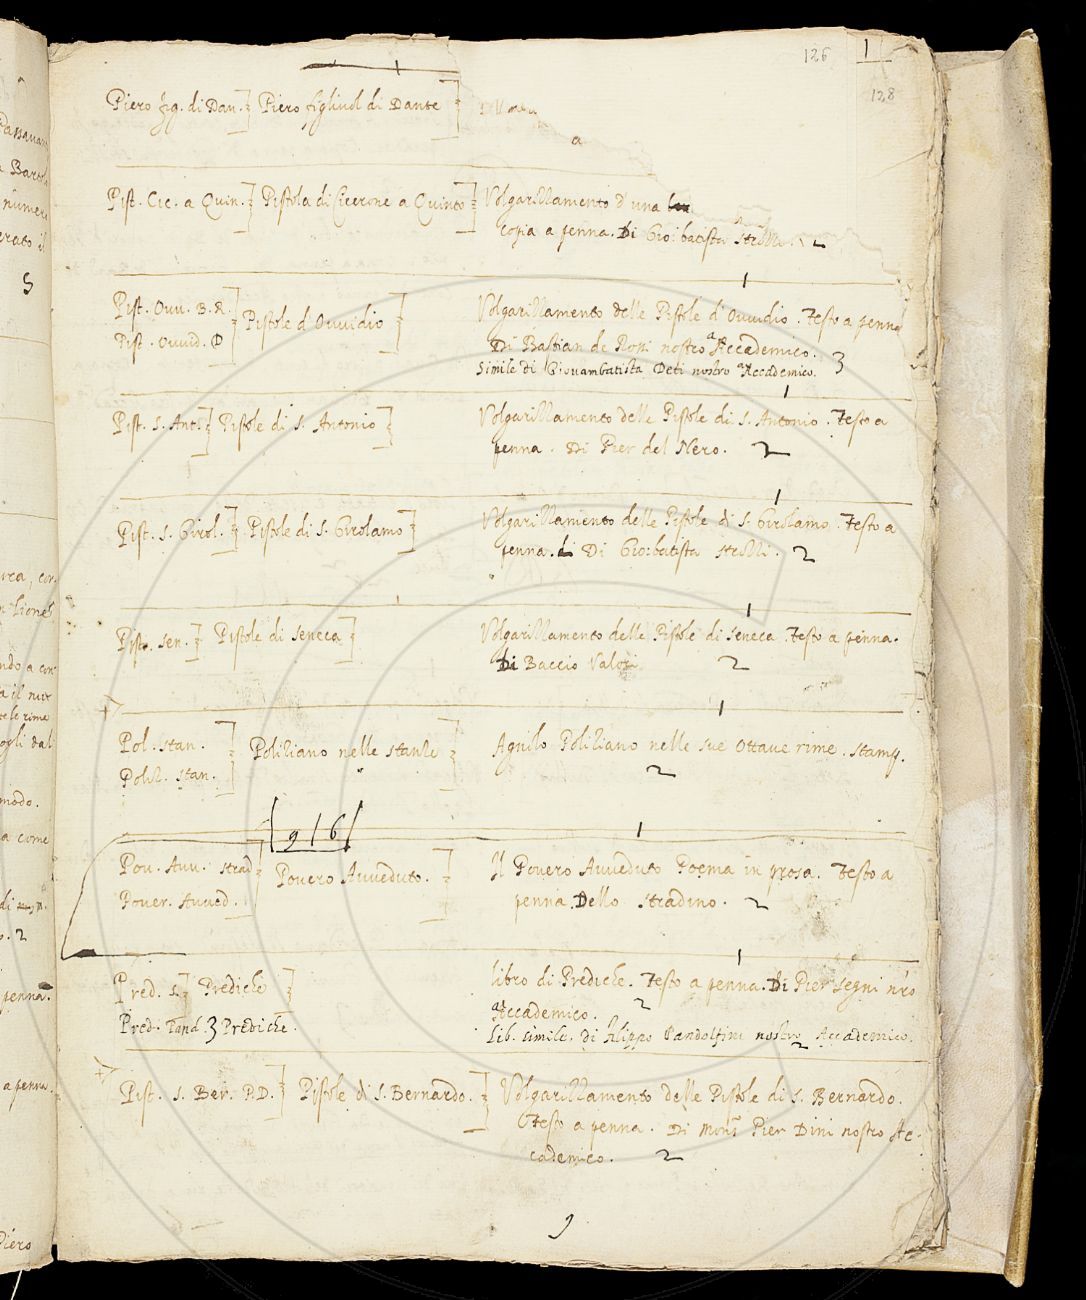 126
1
128
Piero fig. di Dan. ] Piero figliuol di Dante ]
a
Pist. Cic. a Quin. ] Pistola di Cicerone a Quinto ] Volgarizzamento d'una
copia a penna. Di Gio: batista Strozzi. 2
1
Pist. Ovv. B. R. ] Pistole d'Ovvidio ] Volgarizzamento delle Pistole d'Ovvidio. Testo a penna
Pist. Ovvid. D Di Bastian de Rossi nostro Accademico. 3
Simile di Giovambatista Deti nostro Accademico.
1
Pist. S. Ant. ] Pistole di S. Antonio ] Volgarizzamento delle Pistole di S. Antonio. Testo a
penna. Di Pier del Nero. 2
1
Pist. S. Girol. ] Pistole di S. Girolamo ] Volgarizzamento delle Pistole di S. Girolamo. Testo a
penna. Di Gio: batista Strozzi. 2
1
Pist. Sen. ] Pistole di Seneca ] Volgarizzamento delle Pistole di Seneca. Testo a penna.
Di Baccio Valori. 2
1
Pol. Stan. ] Poliziano nelle Stanze ] Agnilo Poliziano nelle sue Ottave rime. Stamp.
Poliz. Stan. 2
9/6
1
Pov. Avv. Strad ] Povero Avveduto. ] Il Povero Avveduto Poema in prosa. Testo a
Pover. Avved. penna. Dello Stradino. 2
1
Pred. S. ] Prediche ] Libro di Prediche. Testo a penna. Di Pier Segni nro
Accademico. 2
Pred. Pand. ] Prediche. Lib. simile. Di Filippo Pandolfini nostro Accademico.
2
Pist. S. Ber. P.D. ] Pistole di S. Bernardo. ] Volgarizzamento delle Pistole di S. Bernardo.
Testo a penna. Di Mons. Pier Dini nostro Ac-
cademico. 2
9